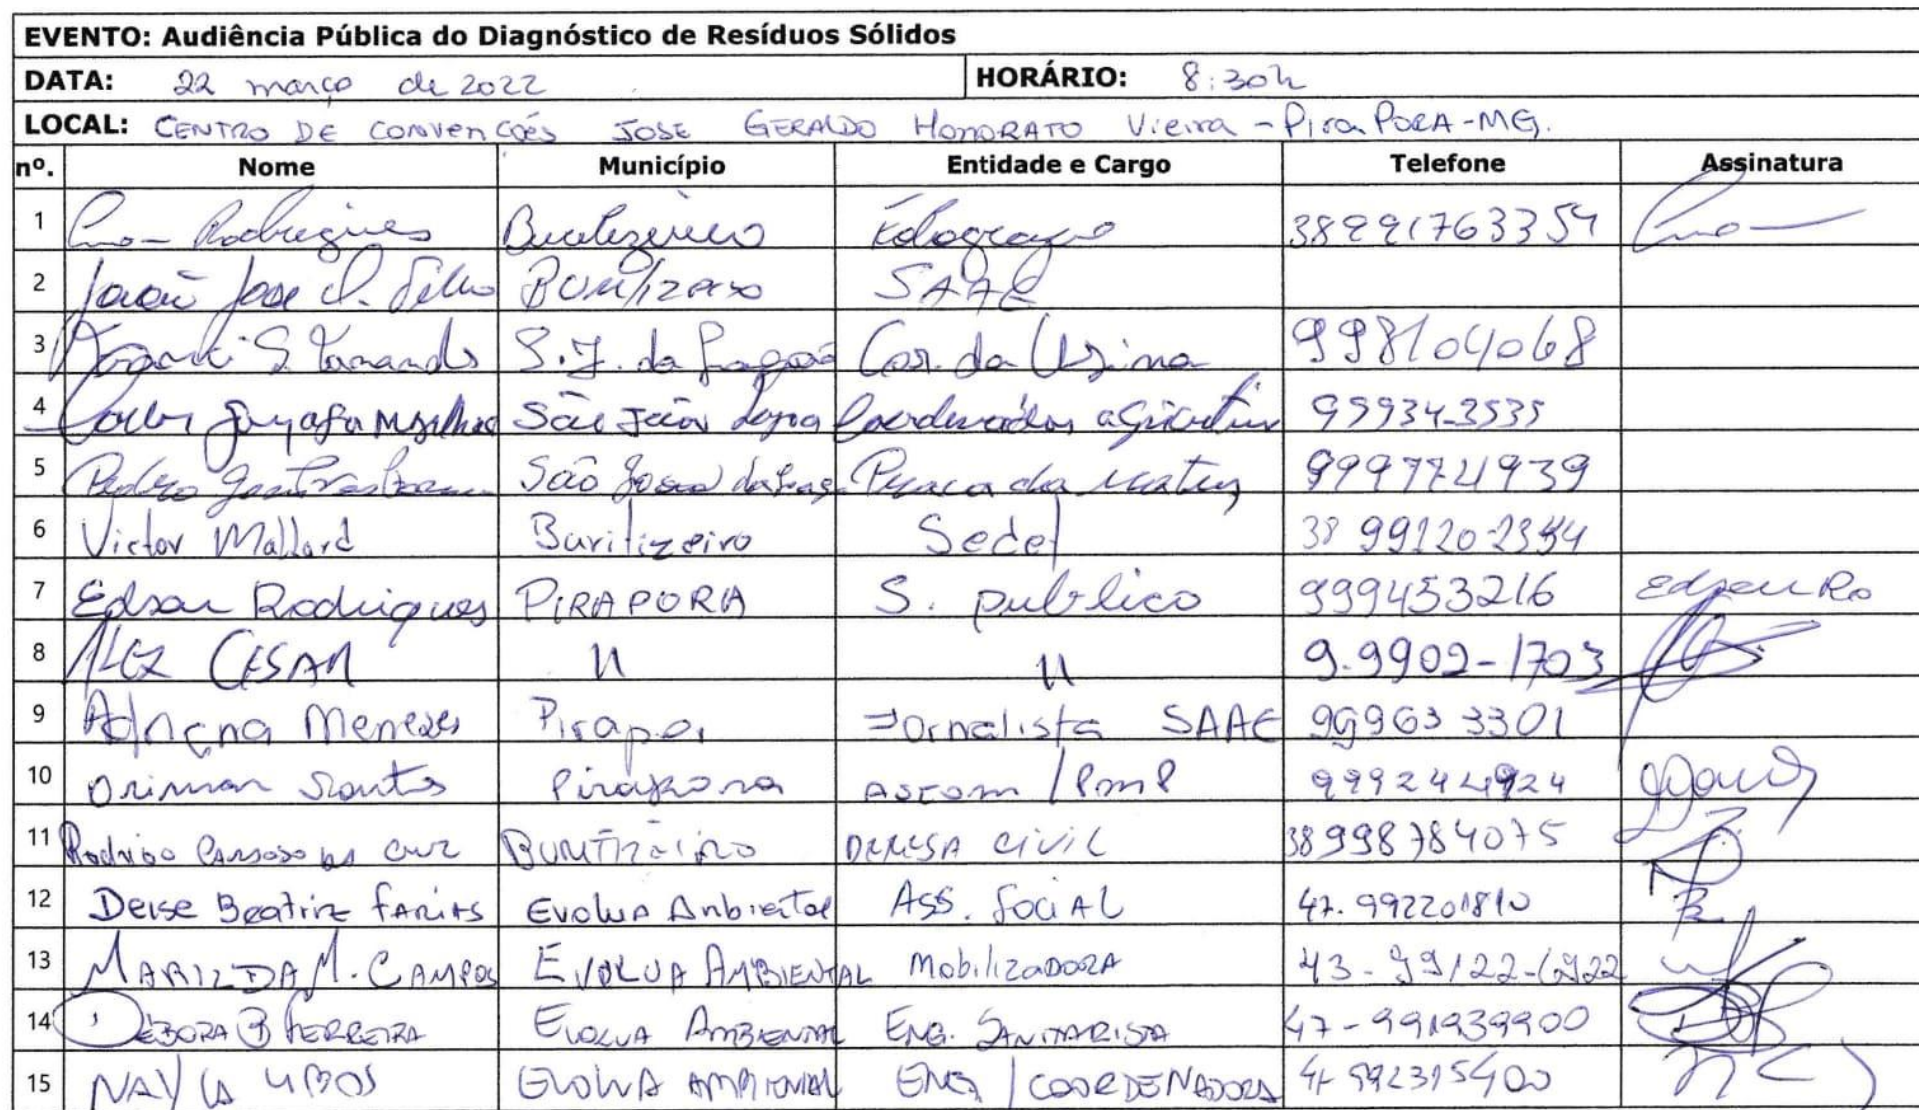 EVENTO: Audiência Pública do Diagnóstico de Resíduos Sólidos
DATA: 22 março de 2022 HORÁRIO: 8:30h
LOCAL: CENTRO DE CONVENÇÕES JOSE GERALDO HONORATO Vieira - PiraPORA-MG.
nº. Nome Município Entidade e Cargo Telefone Assinatura
1 Rodrigues Buritizeiro 38991763354
2 João Jose Filho Buritizeiro SAAE
3 S. S.J. da Lagoa Cor. da Usina 998104068
4 São João Lagoa Coordenador 99934-3535
5 Pedro São João da Lag Praca da Matriz
6 Victor Mallard Buritizeiro Sedet 38 99120-2344
7 Edson Rodrigues PIRAPORA S. publico 999453216 Edson Ro
8 ALEX CESAR 11 11 9.9902-1703
9 Adriana Menezes Pirapor Jornalista SAAE 99963 3301
10 Orimar Santos Pirapora ASCOM / PmP 999244924
11 Rodrigo CARDOSO DA CRUZ BURITIZEIRO DEFESA CIVIL 38 998784075
12 Deise Beatriz FARIAS Evolua Ambiental ASS. SociAL 47. 992201810
13 MARILDA M. CAMPOS EVOLUA AMBIENTAL MobilizaDORA 43-99122-6922
14 DÉBORA B FERREIRA EVOLUA AMBIENTAL ENG. SANITARISTA 47-991939900
15 NAYLA EVOLUA AMBIENTAL ENG / COORDENADORA 992315400